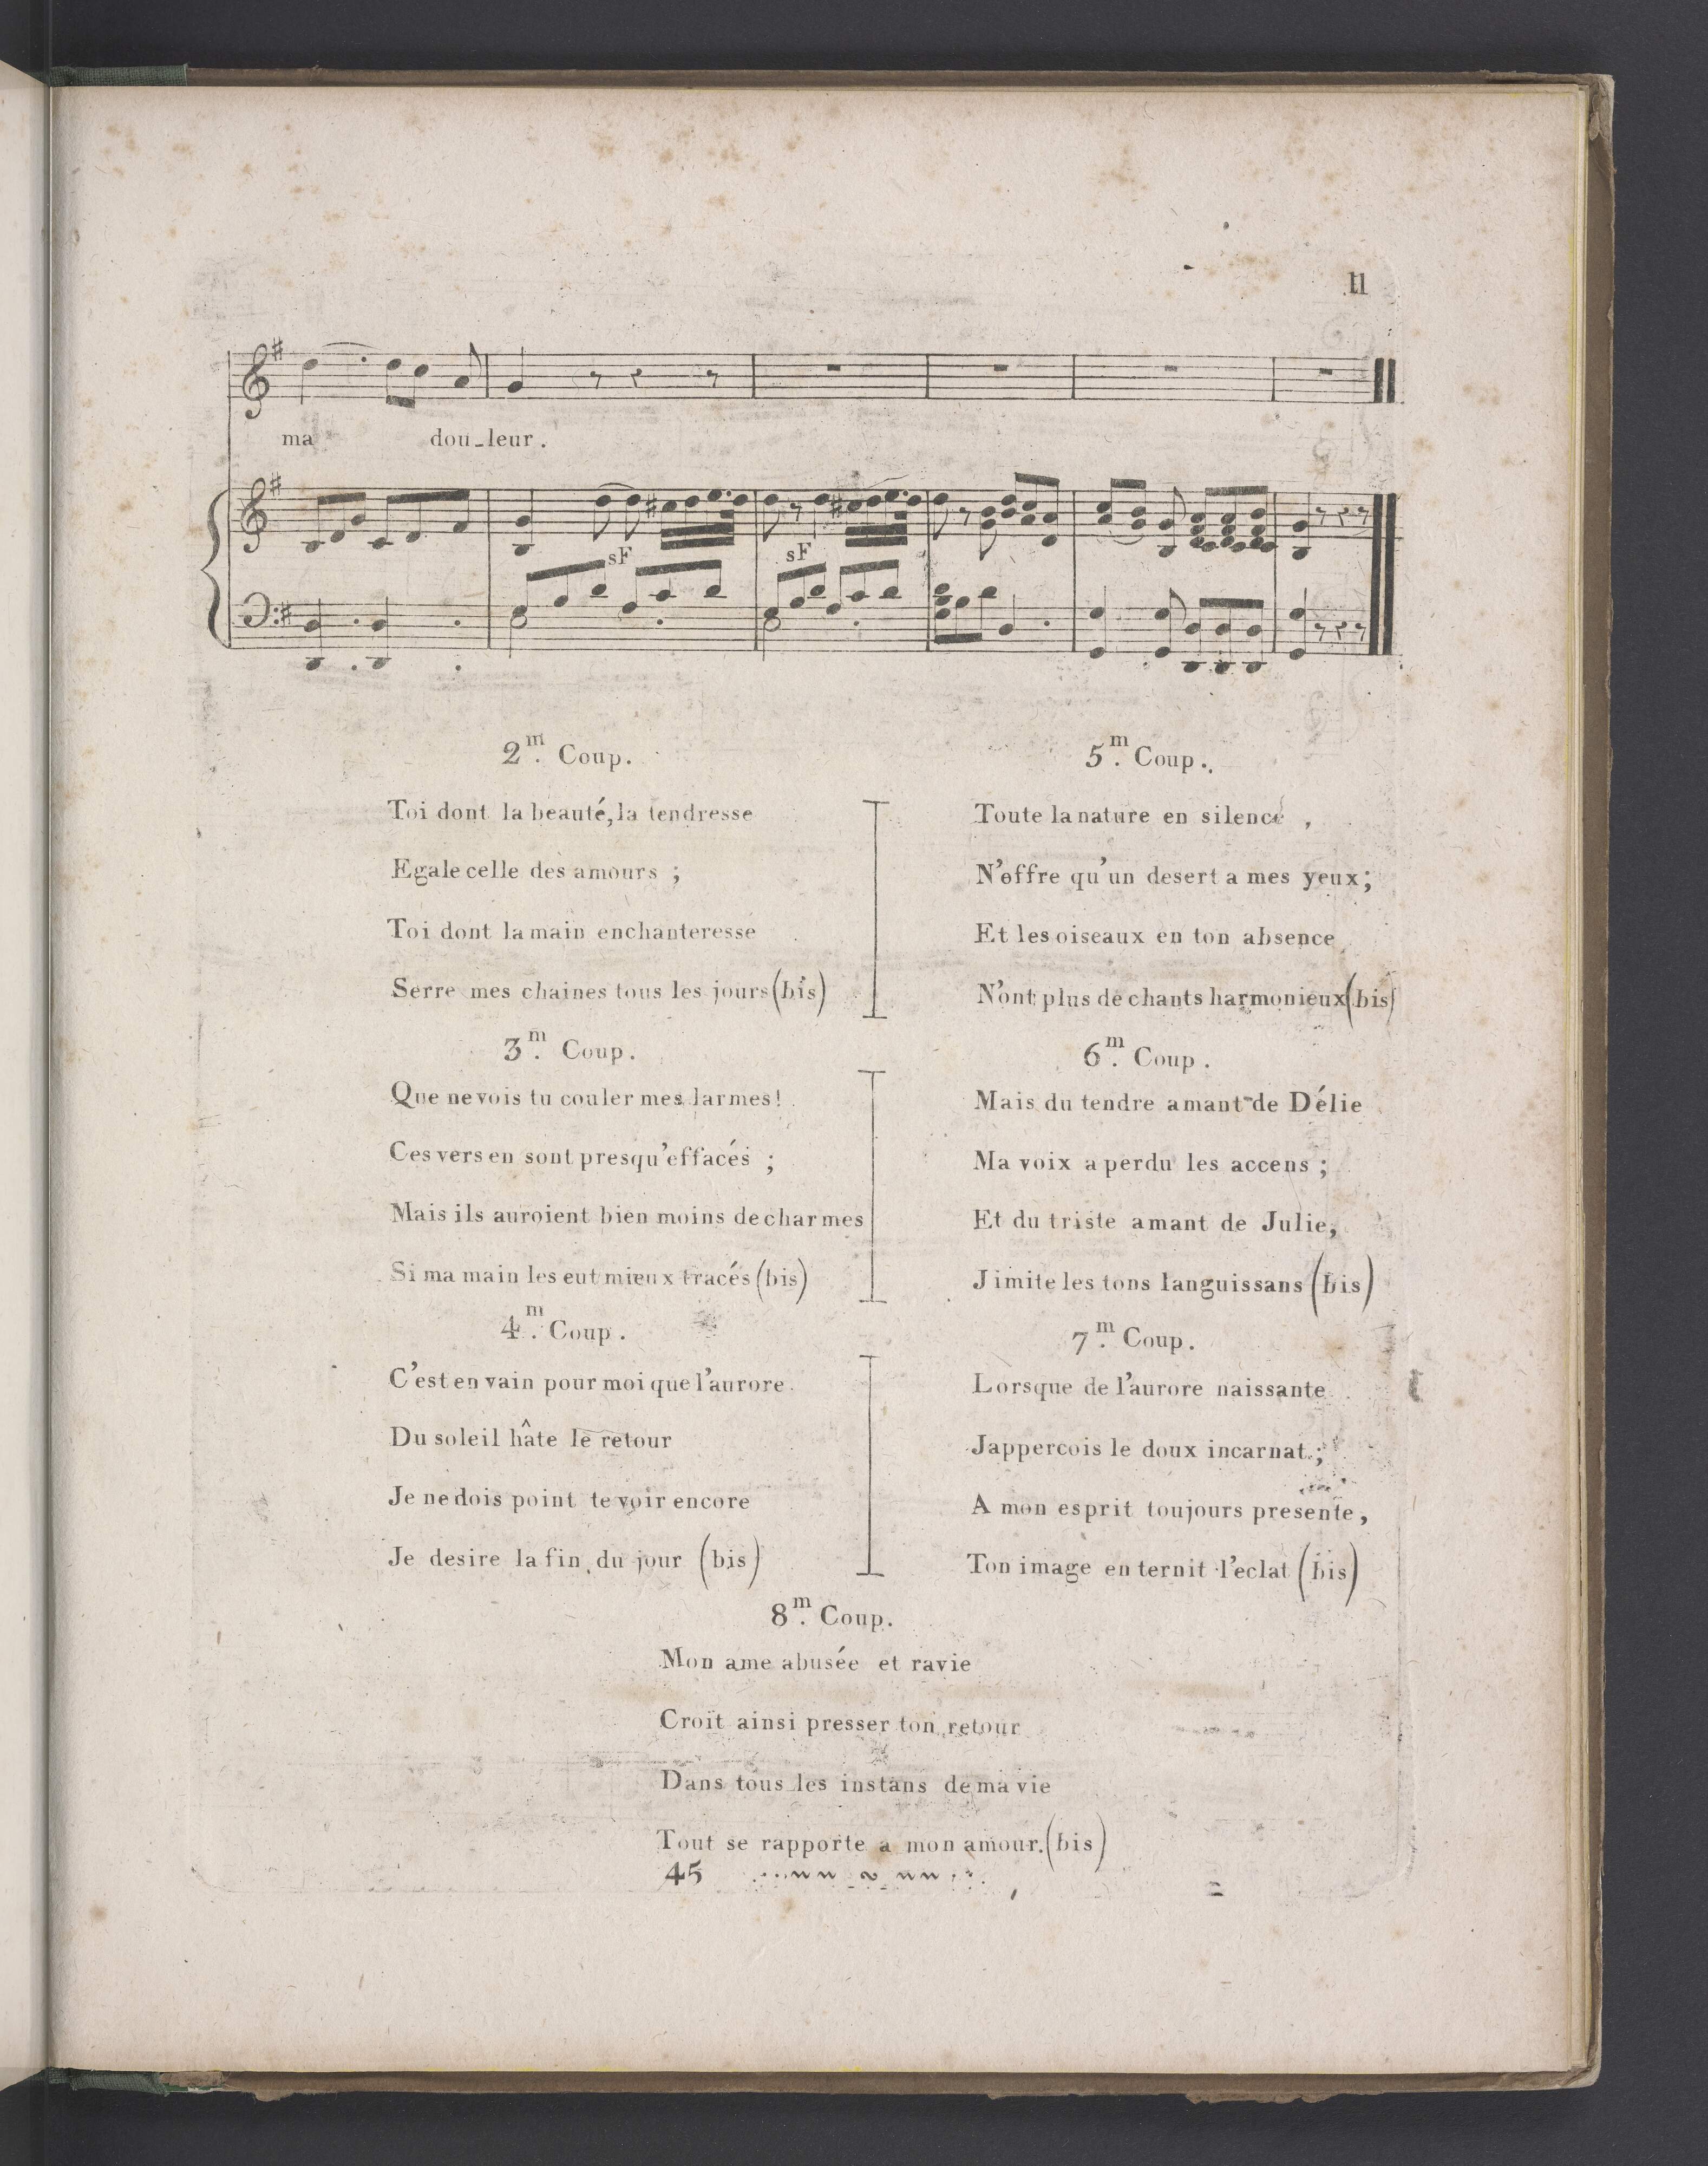 11
ma dou-leur.
sF sF
2.m Coup.
Toi dont la beauté, la tendresse
Egale celle des amours ;
Toi dont la main enchanteresse
Serre mes chaines tous les jours (bis)
3.m Coup.
Que ne vois tu couler mes larmes!
Ces vers en sont presqu'effacés ;
Mais ils auroient bien moins de charmes
Si ma main les eut mieux tracés (bis)
4.m Coup.
C'est en vain pour moi que l'aurore
Du soleil hâte le retour
Je ne dois point te voir encore
Je desire la fin du jour (bis)
5.m Coup.
Toute la nature en silence ,
N'offre qu'un desert a mes yeux;
Et les oiseaux en ton absence
N'ont plus de chants harmonieux (bis)
6.m Coup.
Mais du tendre amant de Délie
Ma voix a perdu les accens ;
Et du triste amant de Julie,
J imite les tons languissans (bis)
7.m Coup.
Lorsque de l'aurore naissante
Jappercois le doux incarnat ;
A mon esprit toujours presente,
Ton image en ternit l'eclat (bis)
8.m Coup.
Mon ame abusée et ravie
Croit ainsi presser ton retour
Dans tous les instans de ma vie
Tout se rapporte a mon amour. (bis)
45